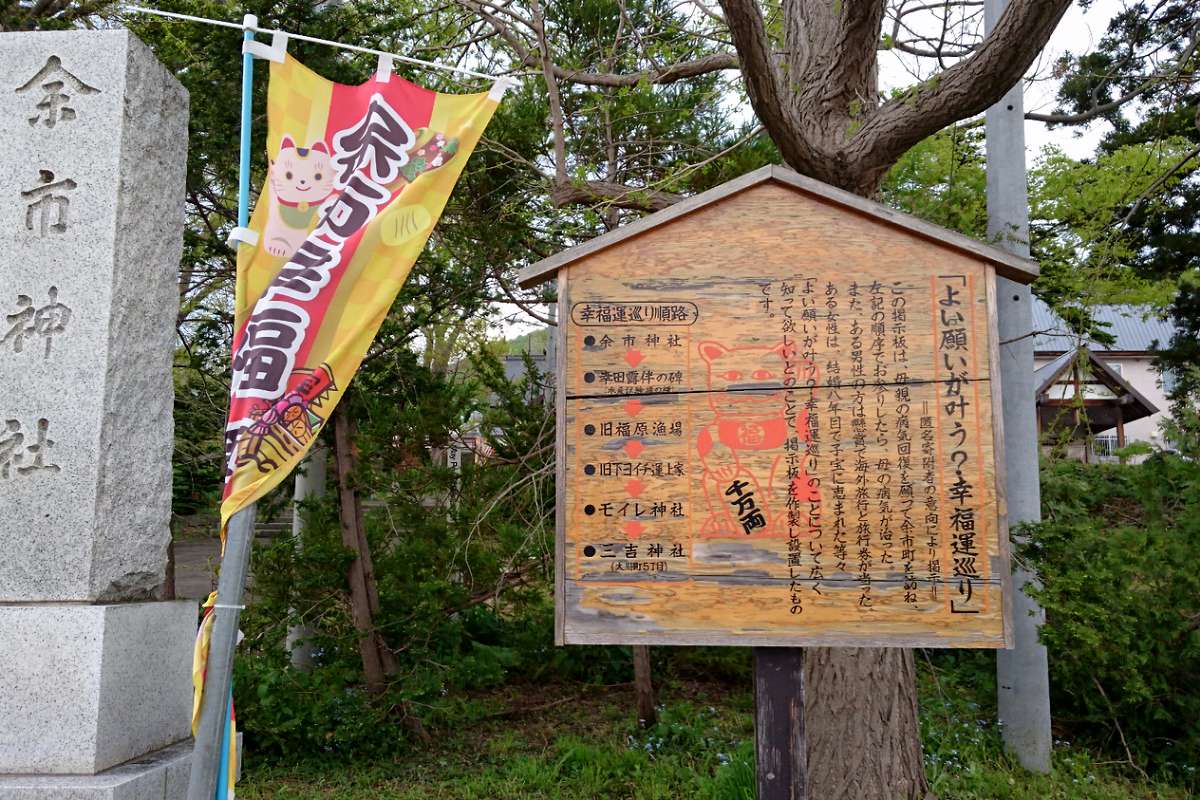 余市神社
「よい願いが叶う?幸福運巡り」
=匿名寄附者の意向により掲示=
この掲示板は、母親の病気回復を願って余市町を訪ね、
左記の順序でお参りしたら、母の病気が治った
また、ある男性の方は懸賞で海外旅行と旅行券が当った、
ある女性は、結婚八年目で子宝に恵まれた等々
「よい願いが叶う?幸福運巡り」のことについて広く
知って欲しいとのことで、掲示板を作製し設置したもの
です。
福
千万両
幸福運巡り順路
●余市神社
●幸田露伴の碑
●旧福原漁場
●旧下ヨイチ運上家
●モイレ神社
●三吉神社
(大川町5丁目)